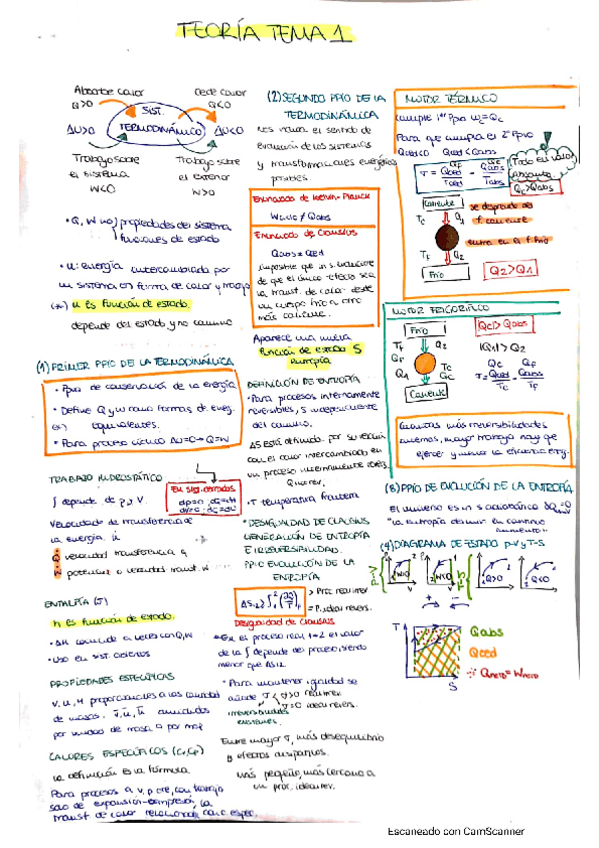 TEORÍA TEMA 1
Absorbe calor
Q>0
Cede calor
Q<0
SIST.
TERMODINÁMICO
ΔU>0
ΔU<0
Trabajo sobre
el sistema
W<0
Trabajo sobre
el exterior
W>0
• Q, W no propiedades del sistema
funciones de estado
• U: energía intercambiada por
un sistema en forma de calor y trabajo
(*) U es función de estado.
depende del estado y no camino
(1) PRIMER PPIO DE LA TERMODINÁMICA
• Ppio de conservación de la energía
• Define Q y W como formas de energ.
equivalentes.
• Para proceso cíclico ΔU=0→Q=W
TRABAJO HIDROSTÁTICO
∫ depende de p, V.
En sist. cerrados
Velocidad de transferencia de
la energía
velocidad transferencia q
potencia o velocidad transf.
ENTALPÍA (J)
h es función de estado.
• ΔH coincide a veces con Q, W
• Uso en sist. abiertos
PROPIEDADES ESPECÍFICAS
V, U, H proporcionales a la cantidad
de masa.
por unidad de masa o por mol
CALORES ESPECÍFICOS (Cv, Cp)
la definición es la fórmula
Para procesos a v, p cte, con trabajo
solo de expansión-compresión, la
transf de calor relacionada con c espec.
(2) SEGUNDO PPIO DE LA
TERMODINÁMICA
nos indica el sentido de
evolución de los sistemas
y transformaciones energéticas
posibles.
Enunciado de Kelvin-Planck
Wciclo ≠ Qabs
Enunciado de Clausius
Qabs = Qced
Imposible que un s. evolucione
de que el único efecto sea
la transf. de calor desde
un cuerpo frío a otro
más caliente.
Aparece una nueva
función de estado S
entropía
DEFINICIÓN DE ENTROPÍA
• Para procesos internamente
reversibles, S independiente
del camino.
ΔS está definido por su relación
con el calor intercambiado en
un proceso internamente revers.
Q inter.
• T temperatura frontera
* DESIGUALDAD DE CLAUSIUS
GENERACIÓN DE ENTROPÍA
E IRREVERSIBILIDAD.
PPIO EVOLUCIÓN DE LA
ENTROPÍA
> Proc real irrev
= P. ideal revers.
Desigualdad de Clausius
• En el proceso real 1→2 el valor
de la ∫ depende del proceso siendo
menor que ΔS12
• Para mantener igualdad se
añade σ
σ>0 real irrev.
σ=0 ideal revers.
irreversibilidades
Entre mayor σ, más desequilibrio
y efectos disipativos.
más pequeño, más cercano a
un proc. ideal rev.
MOTOR TÉRMICO
Cumple 1er Ppio
Para que cumpla el 2º Ppio
Qced≠0 Qced<Qabs
Todo en valor
Absoluto
Qc>Qabs
Caliente
se desprende del
f. caliente
Tc Q1
TF Q2
entra en el f. frío
Frío
Q2>Q1
MOTOR FRIGORÍFICO
Frío
Qc>Qabs
TF
QF
|Q1|>Q2
Q1
Tc
Qc
Caliente
Cuantas más irreversibilidades
tenemos, mayor trabajo hay que
ejercer y menor la eficiencia energ.
(3) PPIO DE EVOLUCIÓN DE LA ENTROPÍA
El universo es un s adiabático
"la entropía del univ. en continuo
aumento"
(4) DIAGRAMA DE ESTADO p-V y T-S
W<0
W>0
Q>0
Q<0
T
Qabs
Qced
Qneto = Wneto
S
Escaneado con CamScanner